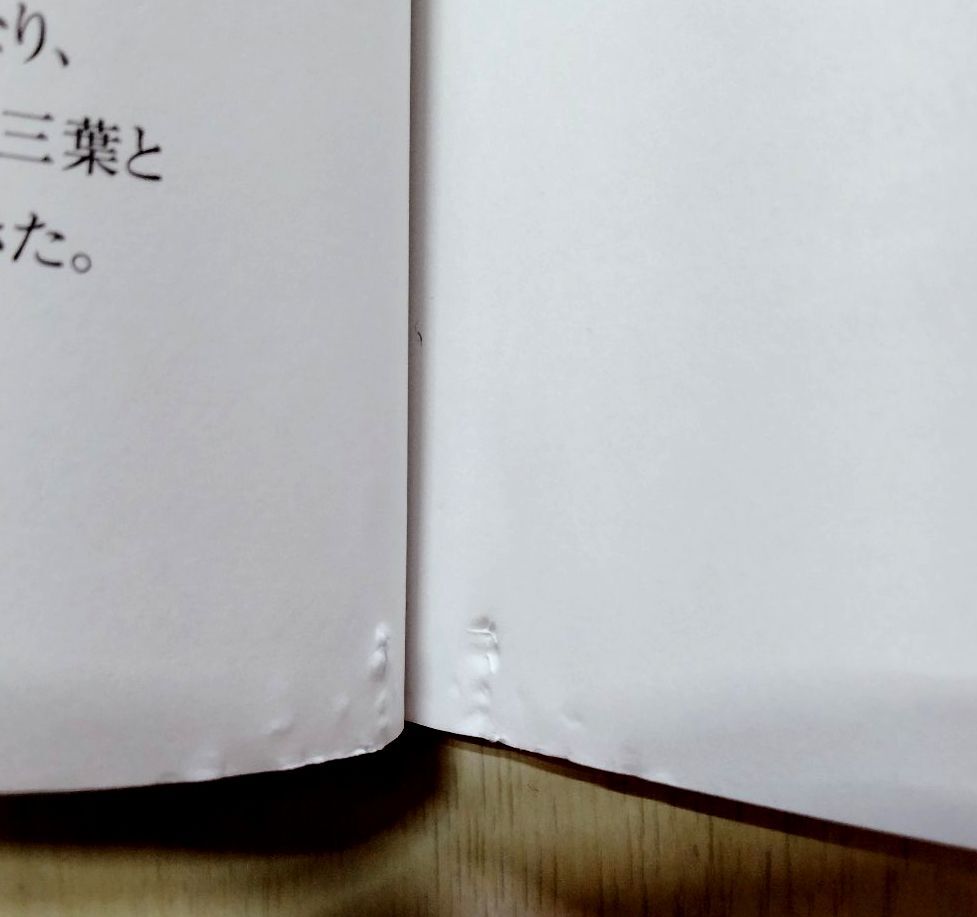 り、
三葉と
た。